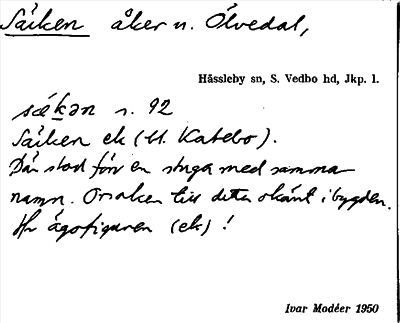 Säiken åker n. Ölvedal,
Hässleby sn, S. Vedbo hd, Jkp. l.
sækən s. 92
Säiken ek (U. Katebo).
Där stod förr en stuga med samma
namn. Orsaken till detta okänt i bygden.
Hr ägofiguren (ek)!
Ivar Modéer 1950